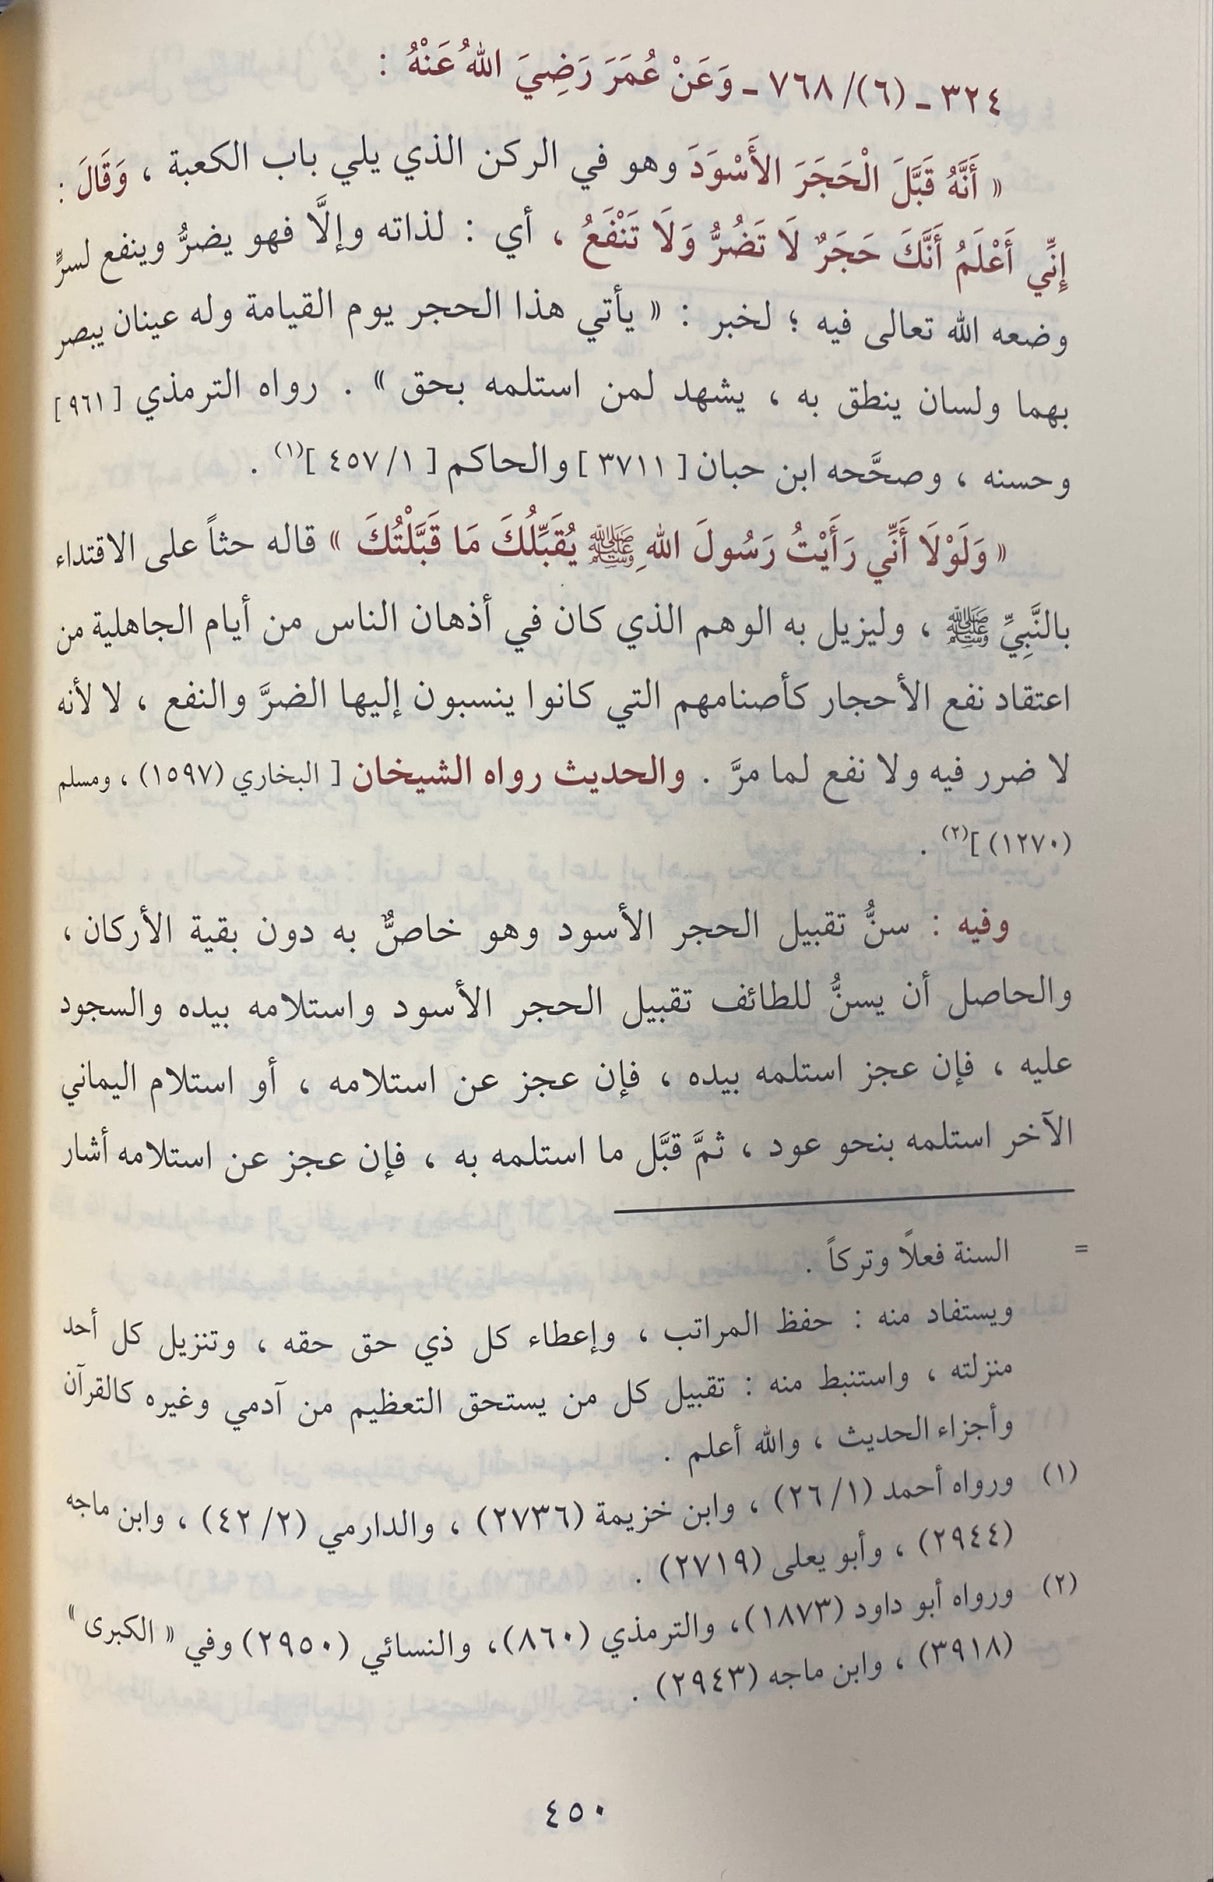 ٣٢٤ ـ (٦)/ ٧٦٨ ـ وَعَنْ عُمَرَ رَضِيَ اللهُ عَنْهُ :
« أَنَّهُ قَبَّلَ الْحَجَرَ الأَسْوَدَ وهو في الركن الذي يلي باب الكعبة ، وَقَالَ :
إِنِّي أَعْلَمُ أَنَّكَ حَجَرٌ لَا تَضُرُّ وَلَا تَنْفَعُ ، أي : لذاته وإلَّا فهو يضرُّ وينفع لسرٍّ
وضعه الله تعالى فيه ؛ لخبر : « يأتي هذا الحجر يوم القيامة وله عينان يبصر
بهما ولسان ينطق به ، يشهد لمن استلمه بحق » . رواه الترمذي [ ٩٦١ ]
وحسنه ، وصحَّحه ابن حبان [ ٣٧١١ ] والحاكم [ ١/ ٤٥٧ ](١) .
« وَلَوْلَا أَنِّي رَأَيْتُ رَسُولَ اللهِ ﷺ يُقَبِّلُكَ مَا قَبَّلْتُكَ » قاله حثاً على الاقتداء
بالنَّبِيِّ ﷺ ، وليزيل به الوهم الذي كان في أذهان الناس من أيام الجاهلية من
اعتقاد نفع الأحجار كأصنامهم التي كانوا ينسبون إليها الضرَّ والنفع ، لا لأنه
لا ضرر فيه ولا نفع لما مرَّ . والحديث رواه الشيخان [ البخاري (١٥٩٧) ، ومسلم
(١٢٧٠) ](٢) .
وفيه : سنُّ تقبيل الحجر الأسود وهو خاصٌّ به دون بقية الأركان ،
والحاصل أن يسنُّ للطائف تقبيل الحجر الأسود واستلامه بيده والسجود
عليه ، فإن عجز استلمه بيده ، فإن عجز عن استلامه ، أو استلام اليماني
الآخر استلمه بنحو عود ، ثمَّ قبَّل ما استلمه به ، فإن عجز عن استلامه أشار
= السنة فعلاً وتركاً .
ويستفاد منه : حفظ المراتب ، وإعطاء كل ذي حق حقه ، وتنزيل كل أحد
منزلته ، واستنبط منه : تقبيل كل من يستحق التعظيم من آدمي وغيره كالقرآن
وأجزاء الحديث ، والله أعلم .
(١) ورواه أحمد (١/ ٢٦) ، وابن خزيمة (٢٧٣٦) ، والدارمي (٢/ ٤٢) ، وابن ماجه
(٢٩٤٤) ، وأبو يعلى (٢٧١٩) .
(٢) ورواه أبو داود (١٨٧٣)، والترمذي (٨٦٠)، والنسائي (٢٩٥٠) وفي « الكبرى »
(٣٩١٨) ، وابن ماجه (٢٩٤٣) .
٤٥٠